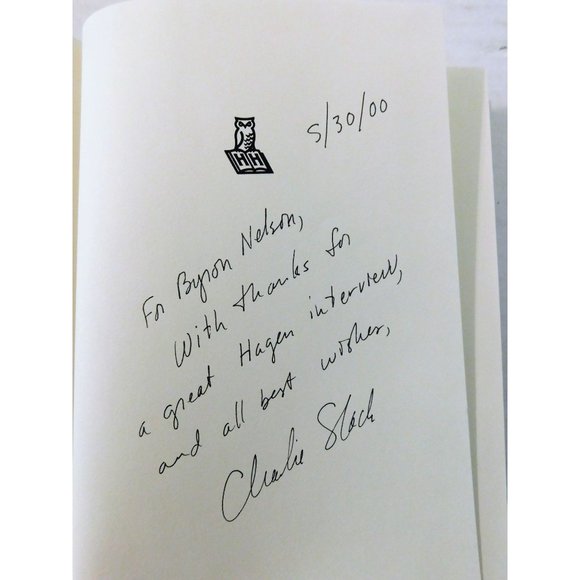 5/30/00
HH
For Byron Nelson,
With thanks for
a great Hagen interview,
and all best wishes,
Charlie Slack